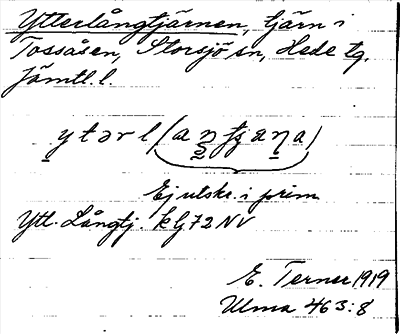 Ytterlångtjärnen, tjärn i
Tossåsen, Storsjö sn, Hede tg.
Jämtl. l.
ytərl(aŋtjæɳa)
Ej utskr. i prim.
Ytt. Långtj. kG72NV
E. Terner 1919
Ulma 463:8